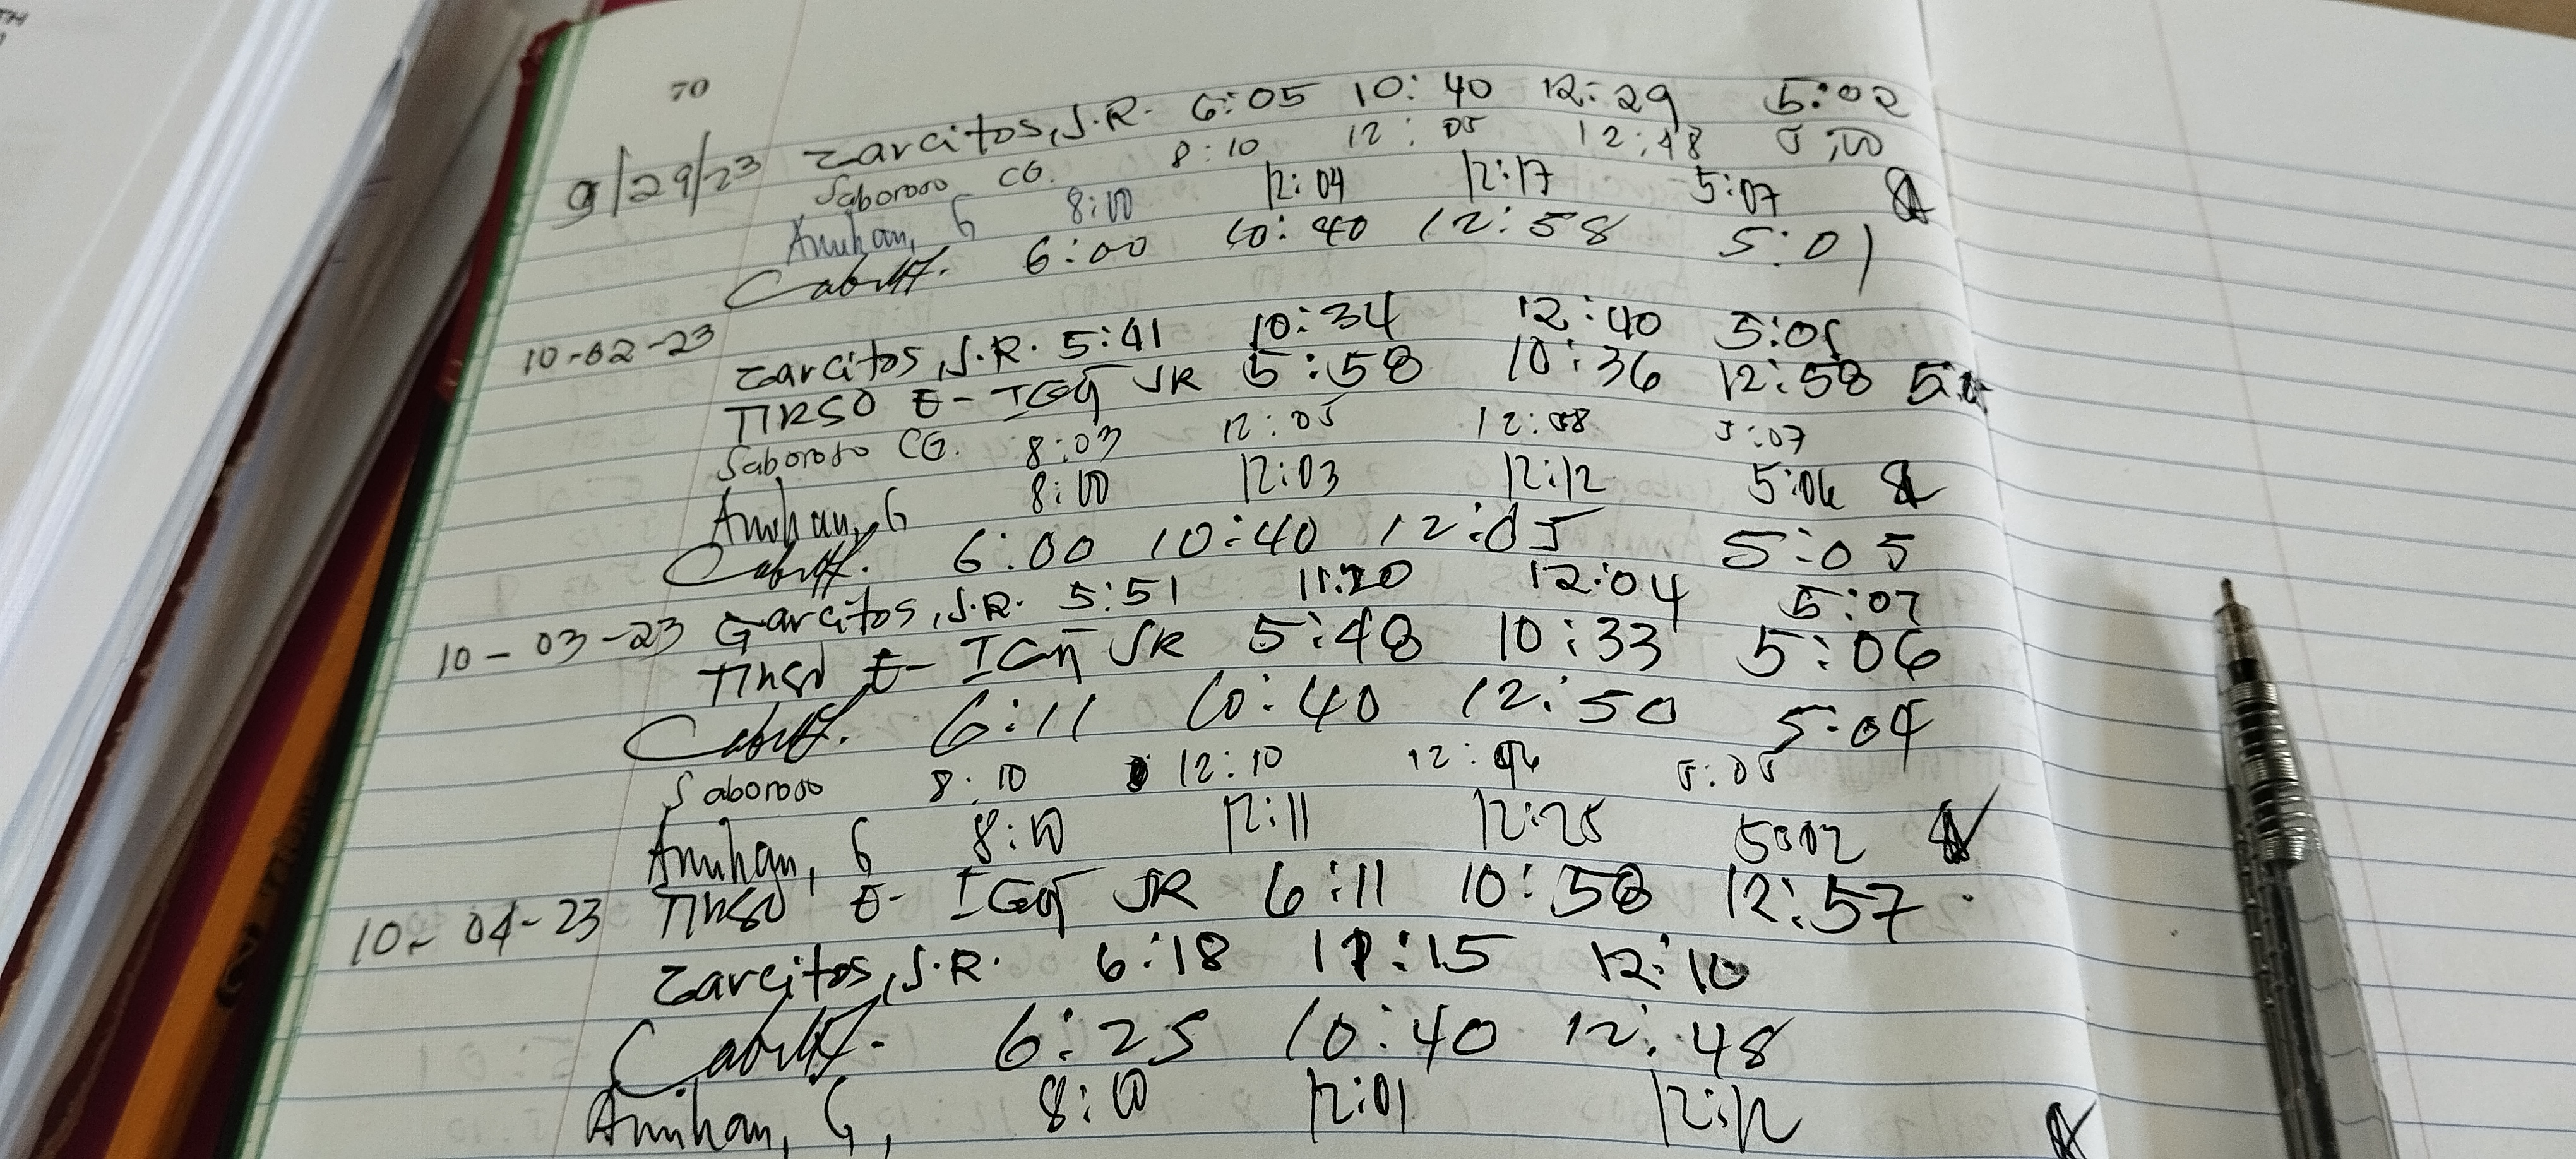 70
9/29/23 Garcitos, J.R. 6:05 10:40 12:29 5:02
Saboroso CG. 8:10 12:05 12:48 5:00
Amihan, G 8:00 12:04 12:17 5:07
6:00 10:40 12:58 5:01
10-02-23
Garcitos, J.R. 5:41 10:34 12:40 5:05
TIRSO E- JR 5:58 10:36 12:58
Saboroso CG. 8:03 12:05 12:08 5:07
Amihan, G 8:00 12:03 12:12 5:06
6:00 10:40 12:05 5:05
10-03-23 Garcitos, J.R. 5:51 11:20 12:04 5:07
TIRSO E- JR 5:48 10:33 5:06
6:11 10:40 12:50 5:04
Saboroso 8:10 12:10 12:46 5:05
Amihan, G 8:10 12:11 12:25 5:02
10-04-23 TIRSO E- JR 6:11 10:58 12:57
Garcitos, J.R. 6:18 11:15 12:10
6:25 10:40 12:48
Amihan, G, 8:10 12:01 12:12